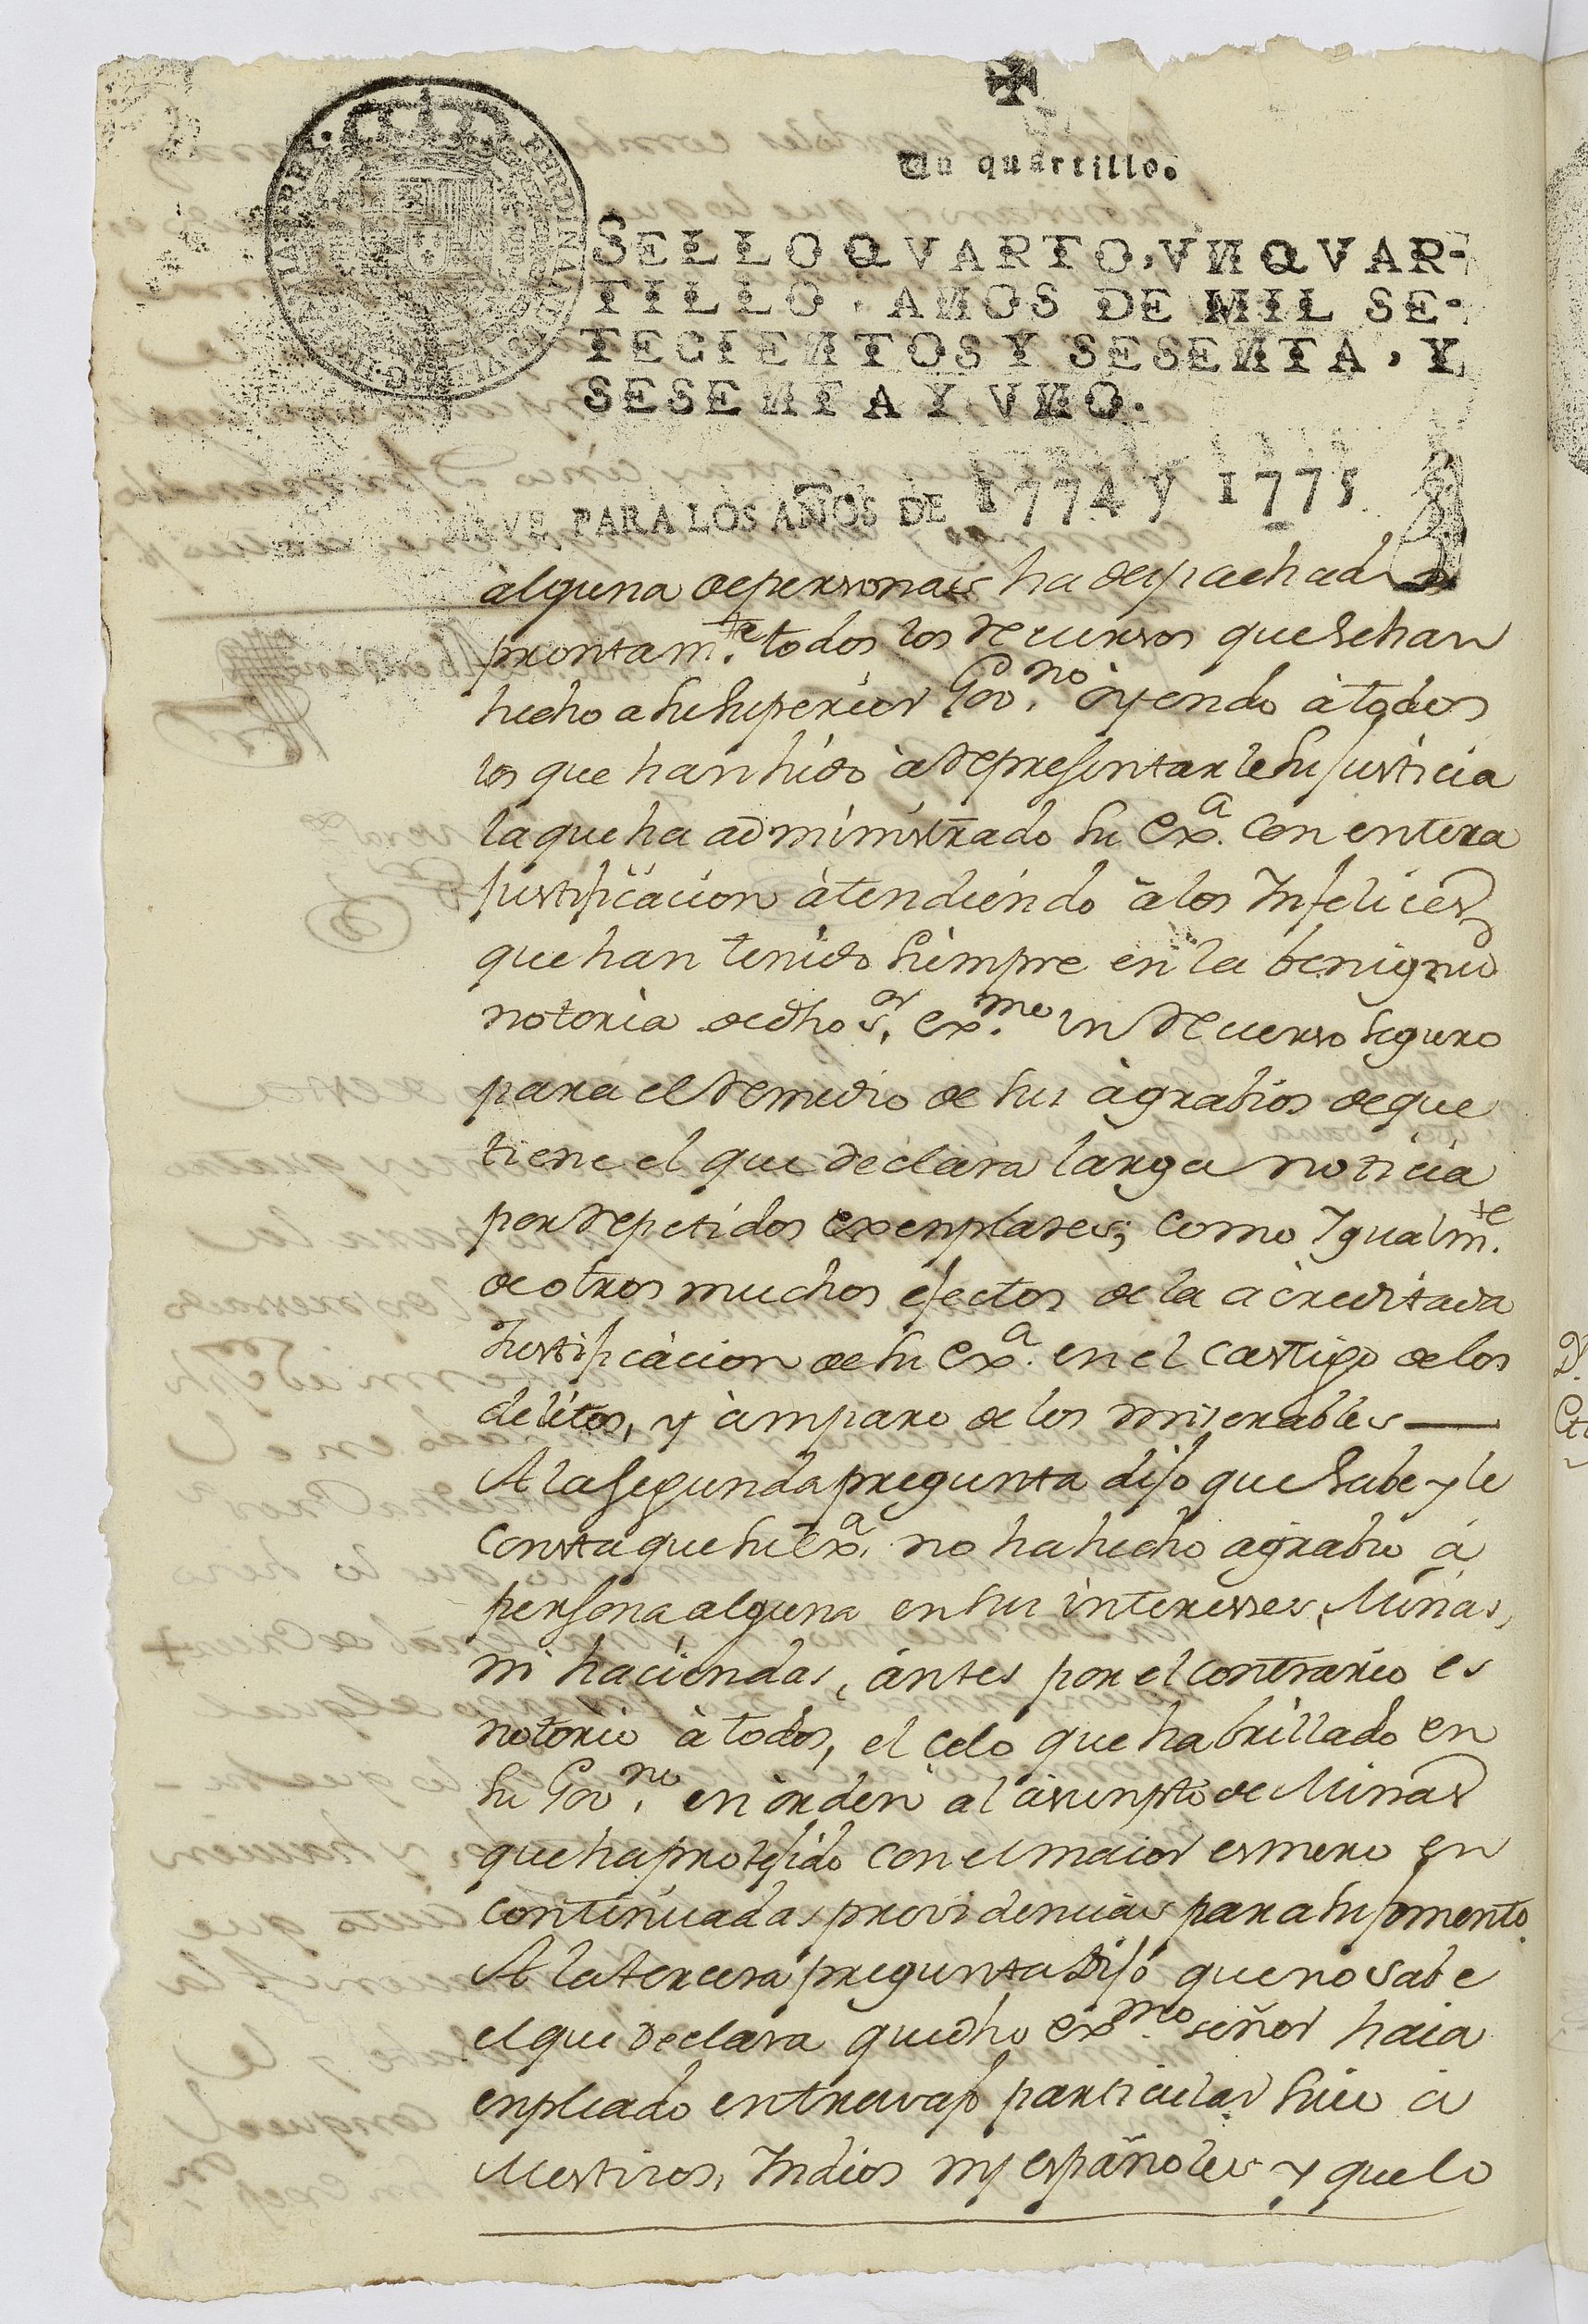 Un quartillo.
SELLO QVARTO, VN QVAR-
TILLO, AÑOS DE MIL SE-
TECIENTOS Y SESENTA, Y
SESENTA Y VNO.
SIRVE PARA LOS AÑOS DE 1774 y 1775
alguna de personas ha despachado
prontam.te todos los recursos que se han
hecho a su superior Gov.no oyendo à todos
los que han hido à representarle su justicia
la que ha administrado su Ex.a con entera
justificacion atendiendo a los Infelices
que han tenido siempre en la benignid
notoria de dho s.or Ex.mo un recurso seguro
para el remedio de sus agrabios de que
tiene el que declara larga noticia
por repetidos exenplares; como Igualm.te
de otros muchos efectos de la acreditada
justificacion de su Ex.a en el castigo de los
delitos, y amparo de los miserables —
A la segunda pregunta dijo que sabe y le
consta que su Ex.a no ha hecho agrabio à
persona alguna en sus interesses, Minas,
ni haciendas, antes por el contrario es
notorio à todos, el celo que ha brillado en
su Gov.no en orden al asunpto de Minas
que ha protejido con el maior esmero en
continuadas providencias para su fomento.
A la tercera pregunta Dijo que no sabe
el que declara que dho Ex.mo señor haia
enpleado en travajo particular suio à
Mestizos, Indios ny españoles y que lo